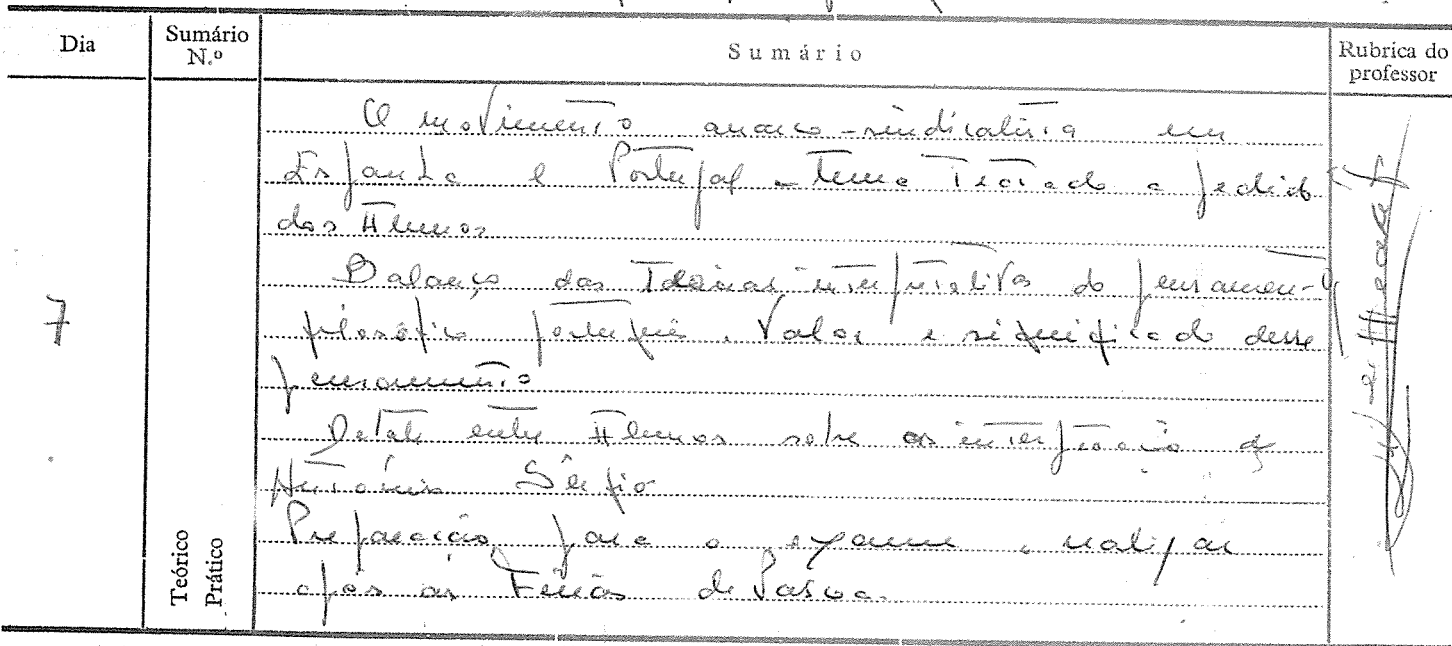 Dia
Sumário N.º
Sumário
Rubrica do professor
O movimento anarco-sindicalista em
Espanha e Portugal - tema tratado a pedido
dos Alunos
Balanço das Teorias interpretativas do pensamento
filosófico português. Valor e significado desse
pensamento
7
Debate entre Alunos sobre as interpretação de
António Sérgio
Preparação para o exame a realizar
após as Férias de Páscoa.
Teórico
Prático